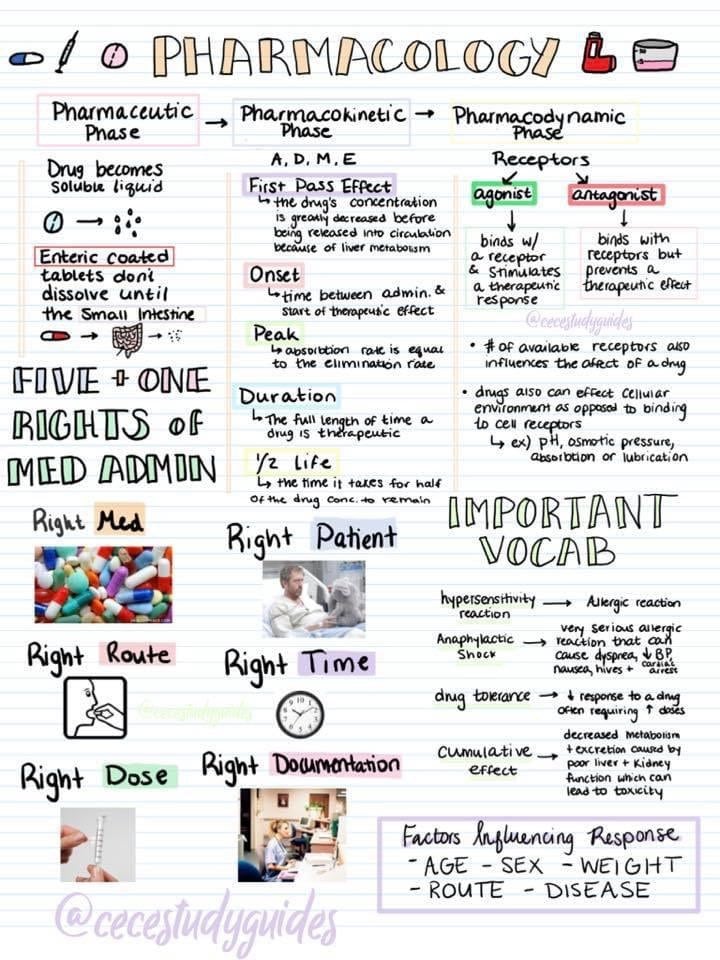 PHARMACOLOGY
Pharmaceutic
Phase
→
Pharmacokinetic
Phase
→
Pharmacodynamic
Phase
Drug becomes
soluble liquid
Enteric coated
tablets don't
dissolve until
the Small Intestine
A, D, M, E
First Pass Effect
↳ the drug's concentration
is greatly decreased before
being released into circulation
because of liver metabolism
Onset
↳ time between admin. &
start of therapeutic effect
Peak
↳ absorbtion rate is equal
to the elimination rate
Duration
↳ The full length of time a
drug is therapeutic
1/2 Life
↳ the time it takes for half
of the drug conc. to remain
Receptors
agonist
binds w/
a receptor
& stimulates
a therapeutic
response
antagonist
binds with
receptors but
prevents a
therapeutic effect
@cecestudyguides
• # of available receptors also
influences the afect of a drug
• drugs also can effect cellular
environment as opposed to binding
to cell receptors
↳ ex) pH, osmotic pressure,
absorbtion or lubrication
FIVE + ONE
RIGHTS OF
MED ADMIN
Right Med
Right Patient
Right Route
@cecestudyguides
Right Time
Right Dose
Right Documentation
IMPORTANT
VOCAB
hypersensitivity
reaction
→ Allergic reaction
Anaphylactic
Shock
→ very serious allergic
reaction that can
cause dyspnea, ↓ BP,
nausea, hives + cardiac
arrest
drug tolerance → ↓ response to a drug
often requiring ↑ doses
Cumulative
effect
→ decreased metabolism
+ excretion caused by
poor liver + kidney
function which can
lead to toxicity
Factors Influencing Response
- AGE - SEX - WEIGHT
- ROUTE - DISEASE
@cecestudyguides